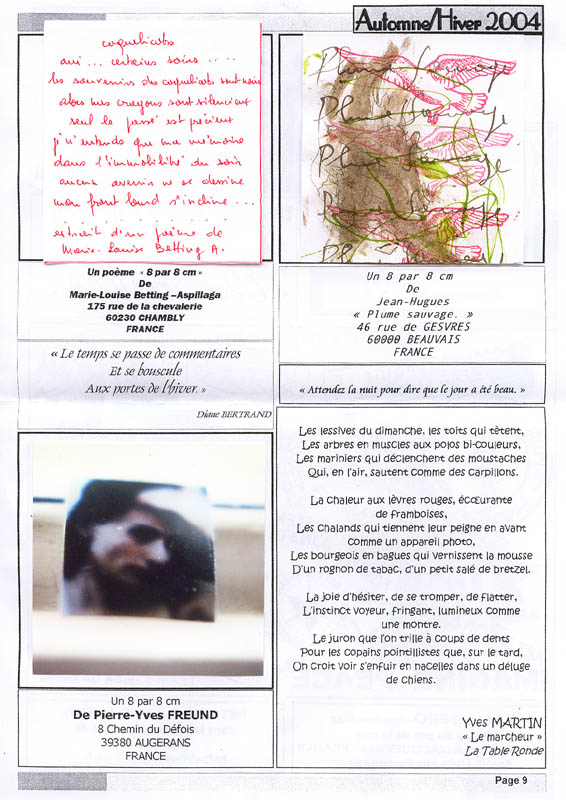 Automne/Hiver 2004
coquelicots
aux ... certains soirs ....
les souvenirs des coquelicots sont noirs
alors mes crayons sont silencieux
seul le passé est présent
j'n'entends que ma mémoire
dans l'immobilité du soir
aucun avenir ne se dessine
mon front lourd s'incline ...
extrait d'un poème de
Marie-Louise Betting A.
Un poème « 8 par 8 cm »
De
Marie-Louise Betting –Aspillaga
175 rue de la chevalerie
60230 CHAMBLY
FRANCE
Plume Sauvage
Plume Sauvage
Plume Sauvage
Plume Sauvage
Un 8 par 8 cm
De
Jean-Hugues
« Plume sauvage. »
46 rue de GESVRES
60000 BEAUVAIS
FRANCE
« Le temps se passe de commentaires
Et se bouscule
Aux portes de l'hiver. »
Diane BERTRAND
« Attendez la nuit pour dire que le jour a été beau. »
Les lessives du dimanche, les toits qui tètent,
Les arbres en muscles aux polos bi-couleurs,
Les mariniers qui déclenchent des moustaches
Qui, en l'air, sautent comme des carpillons.
La chaleur aux lèvres rouges, écœurante
de framboises,
Les chalands qui tiennent leur peigne en avant
comme un appareil photo,
Les bourgeois en bagues qui vernissent la mousse
D'un rognon de tabac, d'un petit salé de bretzel.
La joie d'hésiter, de se tromper, de flatter,
L'instinct voyeur, fringant, lumineux comme
une montre.
Le juron que l'on trille à coups de dents
Pour les copains pointillistes que, sur le tard,
On croit voir s'enfuir en nacelles dans un déluge
de chiens.
Yves MARTIN
« Le marcheur »
La Table Ronde
Un 8 par 8 cm
De Pierre-Yves FREUND
8 Chemin du Défois
39380 AUGERANS
FRANCE
Page 9